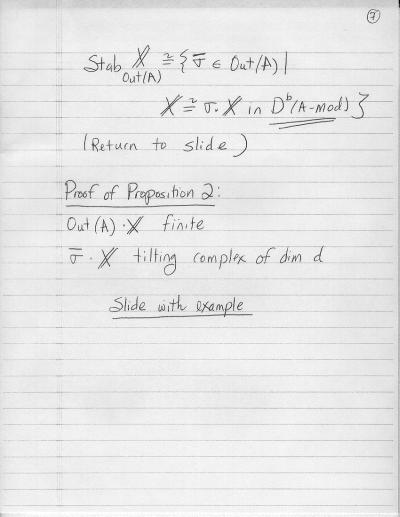 ⑦
Stab_Out(A) 𝕏 ≅ { σ̄ ∈ Out(A) |
𝕏 ≅ σ. 𝕏 in Dᵇ(A-mod) }
(Return to slide)
Proof of Proposition 2:
Out(A) · 𝕏 finite
σ̄ · 𝕏 tilting complex of dim d
Slide with example